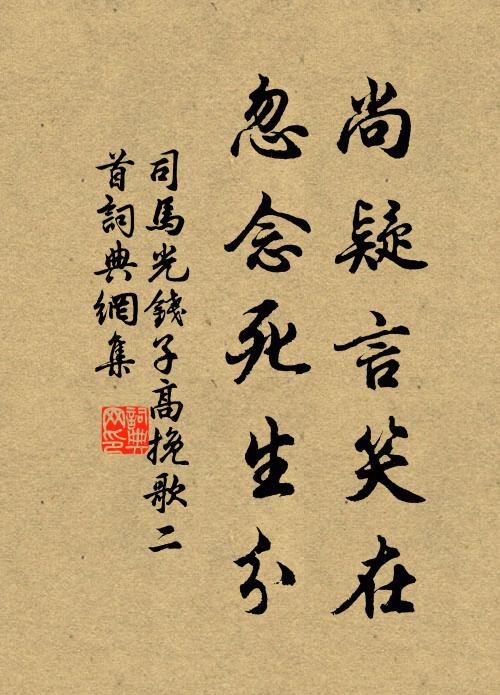 尚疑言笑在
忽念死生分
司馬光錢子高挽歌二
首詞典網集
詞典網印